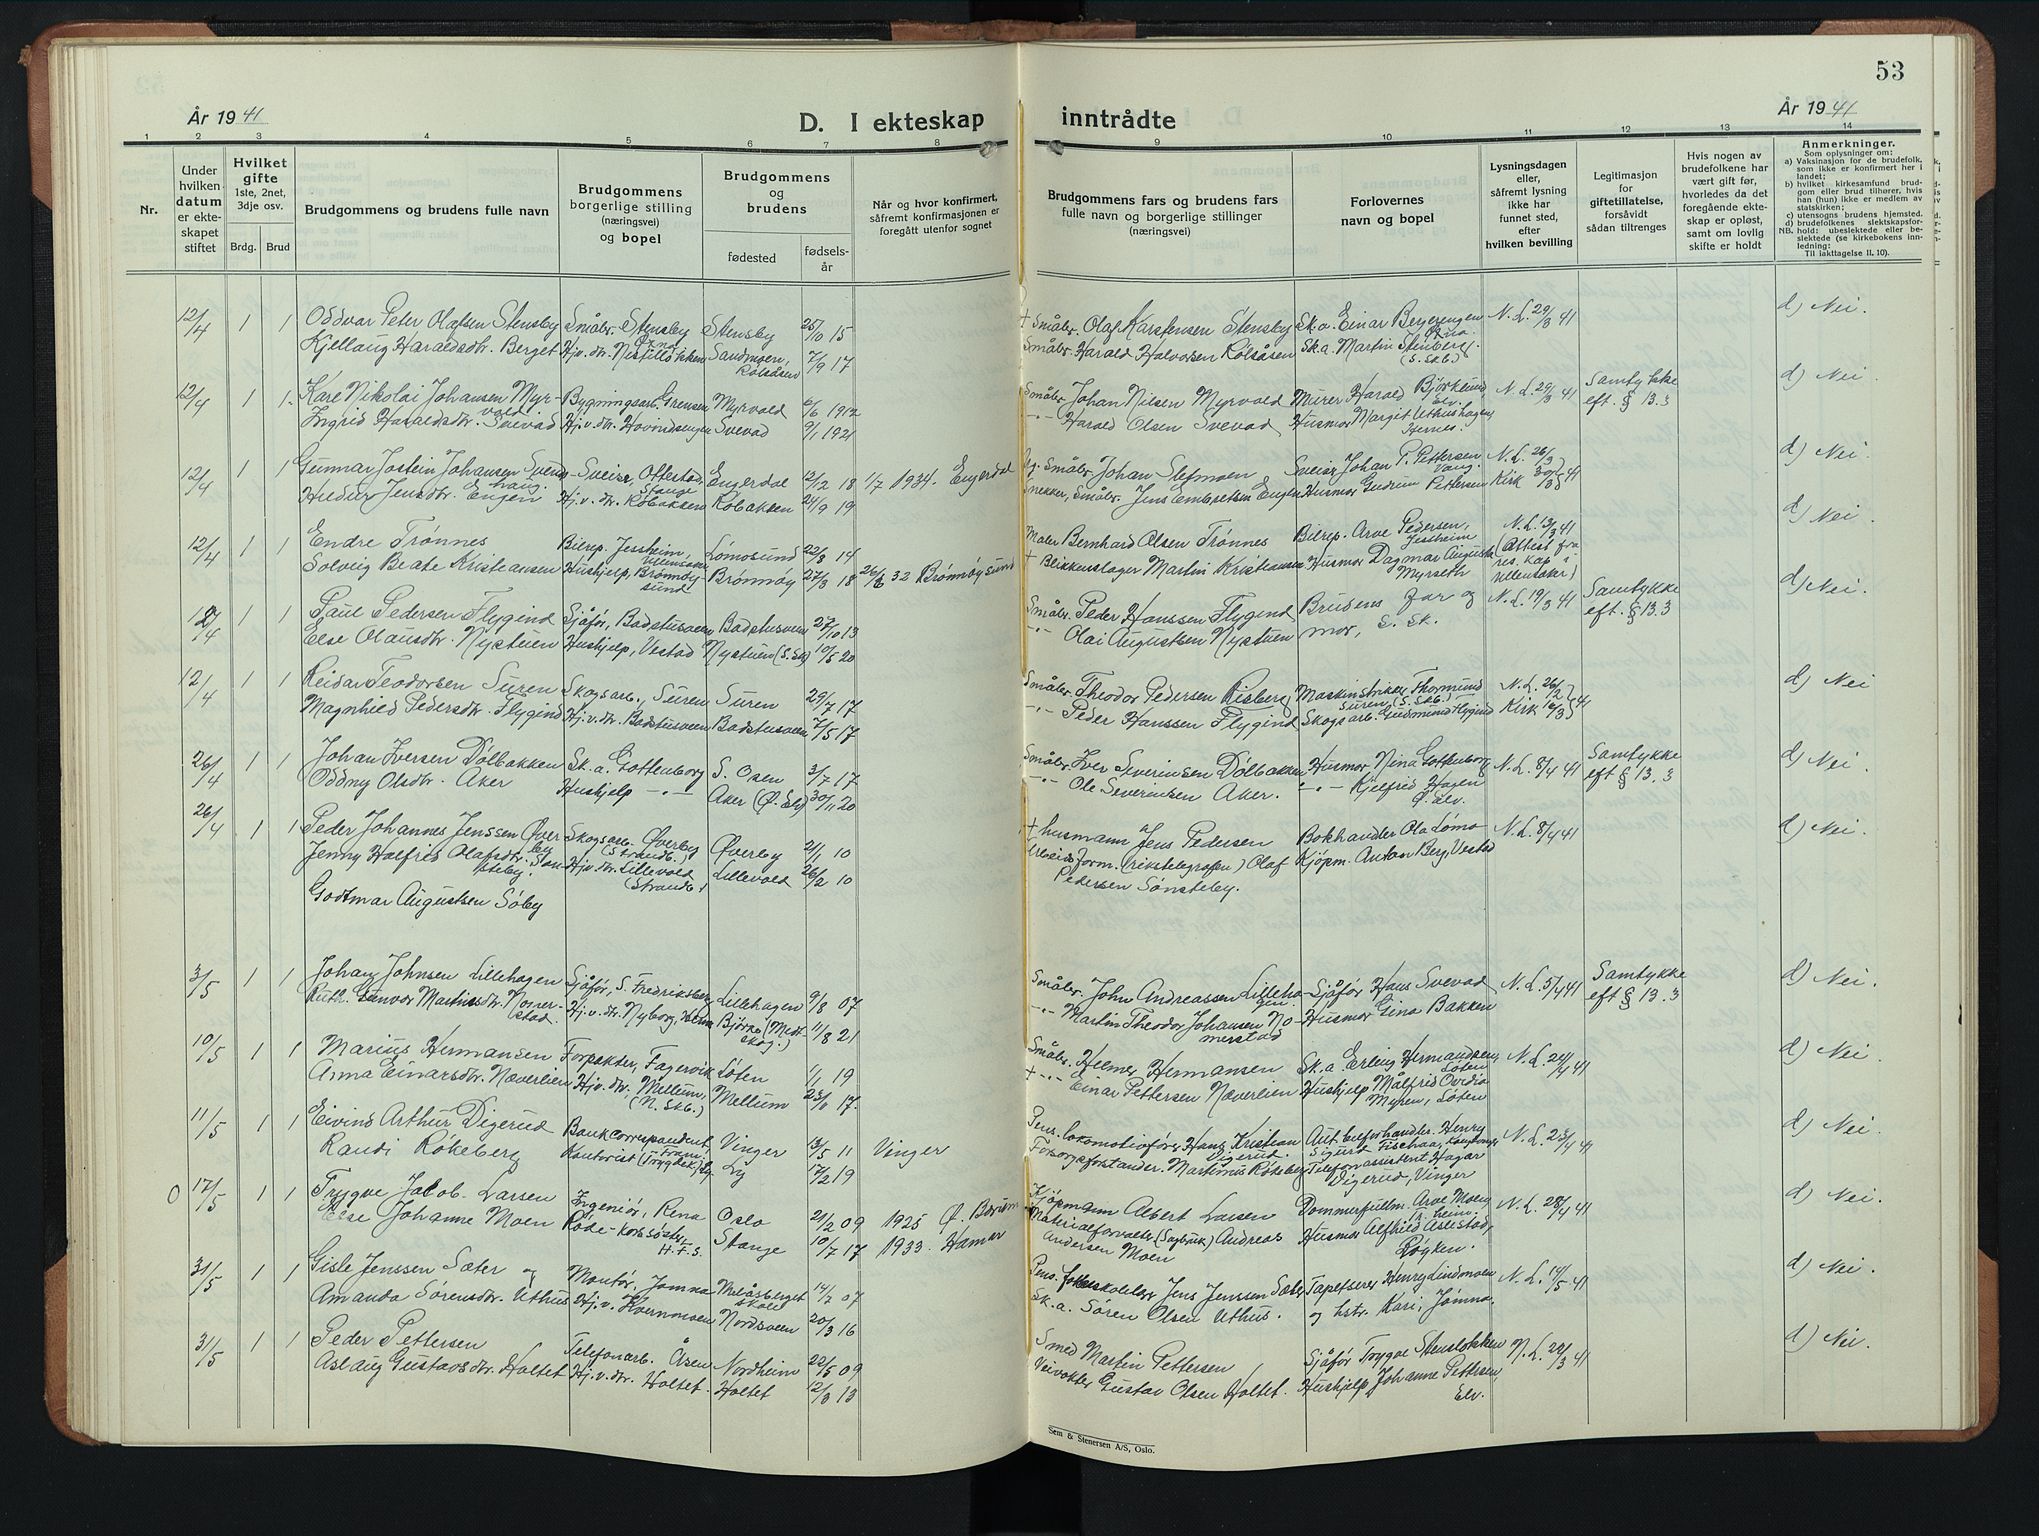 53
År 1941
D. I ekteskap inntrådte
År 1941
1 2 3 4 5 6 7 8 9 10 11 12 13 14
Nr.
Under hvilken datum er ekteskapet stiftet
Hvilket gifte 1ste, 2net, 3dje osv.
Brdg. Brud
Brudgommens og brudens fulle navn
Brudgommens borgerlige stilling (næringsvei) og bopel
Brudgommens og brudens
fødested
fødselsår
Når og hvor konfirmert, såfremt konfirmasjonen er foregått utenfor sognet
Brudgommens fars og brudens fars fulle navn og borgerlige stillinger (næringsvei)
Forlovernes navn og bopel
Lysningsdagen eller, såfremt lysning ikke har funnet sted, efter hvilken bevilling
Legitimasjon for giftetillatelse, forsåvidt sådan tiltrenges
Hvis nogen av brudefolkene har vært gift før, hvorledes da det foregående ekteskap er opløst, samt om lovlig skifte er holdt
Anmerkninger.
Som oplysninger om:
a) Vaksinasjon for de brudefolk, som ikke er konfirmert her i landet;
b) hvilket kirkesamfund brudgom eller brud tilhører, hvis han (hun) ikke er medlem av statskirken;
c) utensogns brudens hjemsted.
d) brudefolkenes slektskapsforhold: ubeslektede eller beslektede (se kirkebokens innledning:
NB. Til iakttagelse II. 10).
12/4 1 1 Oddvar Peter Olafsen Stensby Småbr. Stensby Stensby 25/10 15 + Småbr. Olaf Karstensen Stensby Sk.a. Einar Bergerengen N.L. 29/3 41 d) Nei.
Kjellaug Haraldsdtr. Berget Hj.v. dtr. Nistilløkken Sandmoen, Rolsåsen 7/9 17 Småbr. Harald Halvorsen Rolsåsen Sk.a. Martin Stenberg. (S. Skb.)
12/4 1 1 Kåre Nikolai Johansen Myrvold Bygningsarb. Grensen Myrvold 6/6 1912 Småbr. Johan Nilsen Myrvold Murer Harald Bjørklund, Elv. N.L. 29/3 41 Samtykke eft. § 13.3 d) Nei.
Ingrid Haraldsdtr. Svevad Hj.v. dtr. Hovindsengen Svevad 9/1 1921 -"- Harald Olsen Svevad Husmor Margit Uthushagen, Hernes.
12/4 1 1 Gunnar Jostein Johansen Svenshaug Sveiser, Ottestad, Stange Engerdal 12/2 18 1/7 1934. Engerdal Småbr. Johan Slefmoen Sveiser Johan P. Pettersen Vang. N.L. 26/3 d) Nei.
Jensdtr. Engen Hj.v. dtr. Kobakken Kobakken 24/9 19 Snekker, Småbr. Jens Embretsen Engen Husmor Gudrun Pettersen Kirk 30/3 41
12/4 1 1 Endre Trønnes Bilrep. Jessheim, Ullensaker Lomosund 22/8 14 Maler Bernhard Olsen Trønnes Bilrep. Arve Pedersen, Jessheim N.L. 13/3 41 d) Nei.
Solveig Beate Kristiansen Hushjelp, Brønnøysund Brønnøy 27/3 18 26/6 32 Brønnøysund + Blikkenslager Martin Kristiansen Husmor Dagmar Augusta Myrseth (Attest fra res. kap. i Ullensaker)
12/4 1 1 Paul Pedersen Flygind Sjåfør, Badstusveen Badstusveen 27/10 13 Småbr. Peder Hanssen Flygind Brudens far og N.L. 19/3 41 Samtykke eft. § 13.3 d) Nei.
Else Olausdtr. Nystuen Hushjelp, Vestad Nystuen (S. Sk) 10/5 20 -"- Olai Augustsen Nystuen mor, S. Sk.
12/4 1 1 Reidar Teodorsen Suren Skogsarb., Suren Suren 29/7 17 Småbr. Theodor Pedersen Risberg Maskinstriker Thormund Suren (S. Skb.) N.L. 26/2 d) Nei
Magnhild Pedersdtr. Flygind Hj.v. dtr. Badstusveen Badstusveen 7/5 17 -"- Peder Hanssen Flygind Skogsarb. Gudmund Flygind Kirk 16/3 41
26/4 1 1 Johan Iversen Dølbakken Sk.a. Gottenborg S. Osen 3/7 17 Småbr. Iver Severinsen Dølbakken Husmor Nina Gottenborg N.L. 8/4 41 Samtykke eft § 13.3 d) Nei.
Oddny Olsdtr. Aker Hushjelp -"- Aker (Ø. Elv) 30/11 20 Ole Severinsen Aker. -"- Kjelfrid Hagen Ø. Elv.
26/4 1 1 Peder Johannes Jenssen Øverby Skogsarb. Øverby (Strandb.) Øverby 21/1 10 + husmann Jens Pedersen Bokhandler Ola Lømo N.L. 8/4 41 d) Nei.
Jenny Halfrid Olafsdtr. Sønsteby. Hj.v. dtr. Lillevold (Strandb.) Lillevold 26/2 10 Arbeidsform. (rikstelegrafen) Olaf Pedersen Sønsteby. Kjøpm. Anton Berg, Vestad
Godtmar Augustsen Søby
3/5 1 1 Johan Johnsen Lillehagen Sjåfør, S. Fredriksberg Lillehagen 9/8 07 Småbr. John Andreassen Lillehagen Sjåfør Hans Svevad N.L. 5/4 41 Samtykke eft § 13.3 d) Nei.
Ruth Gunvor Martinsdtr. Nomerstad. Hj.v. dtr. Nyborg, Bjørke (Midtskog.) 11/8 21 -"- Martin Theodor Johansen Nomerstad Husmor Gina Bakken
10/5 1 1 Marius Hermansen Forpakter, Fagervik Løten 1/1 19 Småbr. Helmer Hermansen Sk.a Erling Hermandsen, Løten N.L. 24/4 41 d) Nei.
Anna Einarsdtr. Næverlien Hj.v. dtr. Mellum, (N. Skb.) Mellum 23/11 17. + -"- Einar Pettersen Næverlien Hushjelp Målfrid Ovedia Myren, Løten
11/5 1 1 Eivind Arthur Digerud Bankcorrespondent, Vinger 13/5 11 Vinger Pens. lokomotivfører Hans Kristian Digerud. Aut. bilforhandler Henry Sigurd Tischaa, Kongsvinger N.L. 23/4 41 d) Nei.
Randi Røkeberg Kontorist (Trygdek) 17/2 19 Forsorgsforstander. Martinus Røkeberg Telefonassistent Hagar Digerud, Vinger
O 17/5 1 1 Trygve Jakob Larsen Ingeniør, Rena Oslo 21/2 09 1925 Ø. Bærum Kjøpmann Albert Larsen Dommerfullm. Arve Moen, Tr.heim. N.L. 28/4 41 d) Nei.
Else Johanne Moen Røde-Korssøster, H.F.S. Stange 10/7 17 1933. Hamar Materialforvalter (Sagbruk) Andreas Andersen Moen Husmor Alfhild Aslestad, Røyken.
31/5 1 1 Gisle Jenssen Sæter og Montør, Jømna Melåsberget skole 14/7 07 Pens. folkeskolelær. Jens Jenssen Sæter Tapetserer Henry Lindmoen N.L. 14/5 41 d) Nei.
Amanda Sørensdtr. Uthus Hj.v. Kvernmoen Nordsveen 20/3 16 Sk.a. Søren Olsen Uthus. og hstr. Kari, Jømna.
31/5 1 1 Peder Pettersen Telefonarb. Åsen Nordheim 22/5 09 Smed Martin Pettersen Sjåfør Trygve Stenslokken N.L. 22/3 41 d) Nei.
Aslaug Gustavsdtr. Holtet Hj.v. dtr. Holtet. Holtet 12/3 13 Veivokter Gustav Olsen Holtet. Hushjelp Johanne Pettersen, Elv.
Sem & Stenersen A/S, Oslo.